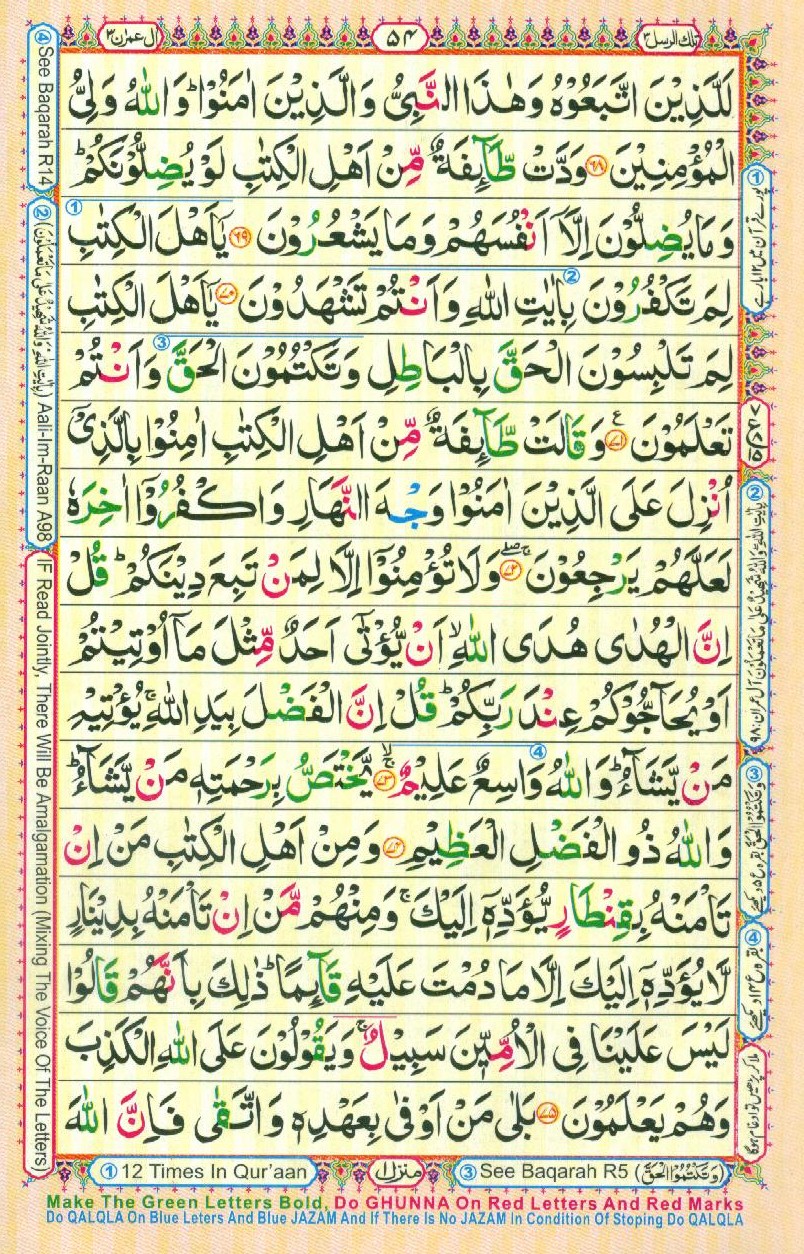 تلك الرسل ٣
۵۴
اٰل عمرٰن ٣
لَلَّذِيْنَ اتَّبَعُوْهُ وَهٰذَا النَّبِيُّ وَالَّذِيْنَ اٰمَنُوْا ؕ وَاللّٰهُ وَلِيُّ
الْمُؤْمِنِيْنَ ﴿۶۸﴾ وَدَّتْ طَّآىِٕفَةٌ مِّنْ اَهْلِ الْكِتٰبِ لَوْ يُضِلُّوْنَكُمْ ؕ
وَمَا يُضِلُّوْنَ اِلَّاۤ اَنْفُسَهُمْ وَمَا يَشْعُرُوْنَ ﴿۶۹﴾ يٰۤاَهْلَ الْكِتٰبِ
لِمَ تَكْفُرُوْنَ بِاٰيٰتِ اللّٰهِ وَاَنْتُمْ تَشْهَدُوْنَ ﴿۷۰﴾ يٰۤاَهْلَ الْكِتٰبِ
لِمَ تَلْبِسُوْنَ الْحَقَّ بِالْبَاطِلِ وَتَكْتُمُوْنَ الْحَقَّ وَاَنْتُمْ
تَعْلَمُوْنَ ﴿۷۱﴾ ع وَقَالَتْ طَّآىِٕفَةٌ مِّنْ اَهْلِ الْكِتٰبِ اٰمِنُوْا بِالَّذِيْۤ
اُنْزِلَ عَلَى الَّذِيْنَ اٰمَنُوْا وَجْهَ النَّهَارِ وَاكْفُرُوْۤا اٰخِرَهٗ
لَعَلَّهُمْ يَرْجِعُوْنَ ﴿۷۲﴾ وَلَا تُؤْمِنُوْۤا اِلَّا لِمَنْ تَبِعَ دِيْنَكُمْ ؕ قُلْ
اِنَّ الْهُدٰى هُدَى اللّٰهِ ۙ اَنْ يُّؤْتٰۤى اَحَدٌ مِّثْلَ مَاۤ اُوْتِيْتُمْ
اَوْ يُحَآجُّوْكُمْ عِنْدَ رَبِّكُمْ ؕ قُلْ اِنَّ الْفَضْلَ بِيَدِ اللّٰهِ ۚ يُؤْتِيْهِ
مَنْ يَّشَآءُ ؕ وَاللّٰهُ وَاسِعٌ عَلِيْمٌ ﴿۷۳﴾ يَّخْتَصُّ بِرَحْمَتِهٖ مَنْ يَّشَآءُ ؕ
وَاللّٰهُ ذُو الْفَضْلِ الْعَظِيْمِ ﴿۷۴﴾ وَمِنْ اَهْلِ الْكِتٰبِ مَنْ اِنْ
تَاْمَنْهُ بِقِنْطَارٍ يُّؤَدِّهٖۤ اِلَيْكَ ۚ وَمِنْهُمْ مَّنْ اِنْ تَاْمَنْهُ بِدِيْنَارٍ
لَّا يُؤَدِّهٖۤ اِلَيْكَ اِلَّا مَا دُمْتَ عَلَيْهِ قَآىِٕمًا ؕ ذٰلِكَ بِاَنَّهُمْ قَالُوْا
لَيْسَ عَلَيْنَا فِى الْاُمِّيّٖنَ سَبِيْلٌ ۚ وَيَقُوْلُوْنَ عَلَى اللّٰهِ الْكَذِبَ
وَهُمْ يَعْلَمُوْنَ ﴿۷۵﴾ بَلٰى مَنْ اَوْفٰى بِعَهْدِهٖ وَاتَّقٰى فَاِنَّ اللّٰهَ
① پورے قرآن میں ۱۲ بار ہے
② بِاٰيٰتِ اللّٰهِ وَاللّٰهُ شَهِيْدٌ عَلٰى مَا تَعْمَلُوْنَ آل عمران: ۹۸
③ وَتَكْتُمُوا الْحَقَّ بقرہ ع ۵ دیکھئے
④ بقرہ ع ۱۴ دیکھئے
ملا کر پڑھیں تو ادغام ہوگا
④ See Baqarah R14
② (بِاٰيٰتِ اللّٰهِ وَاللّٰهُ شَهِيْدٌ عَلٰى مَا تَعْمَلُوْنَ) Aali-Im-Raan A98
IF Read Jointly, There Will Be Amalgamation (Mixing The Voice Of The Letters)
① 12 Times In Qur'aan
منزل ١
③ See Baqarah R5 (وَتَكْتُمُوا الْحَقَّ)
Make The Green Letters Bold, Do GHUNNA On Red Letters And Red Marks
Do QALQLA On Blue Leters And Blue JAZAM And If There Is No JAZAM In Condition Of Stoping Do QALQLA